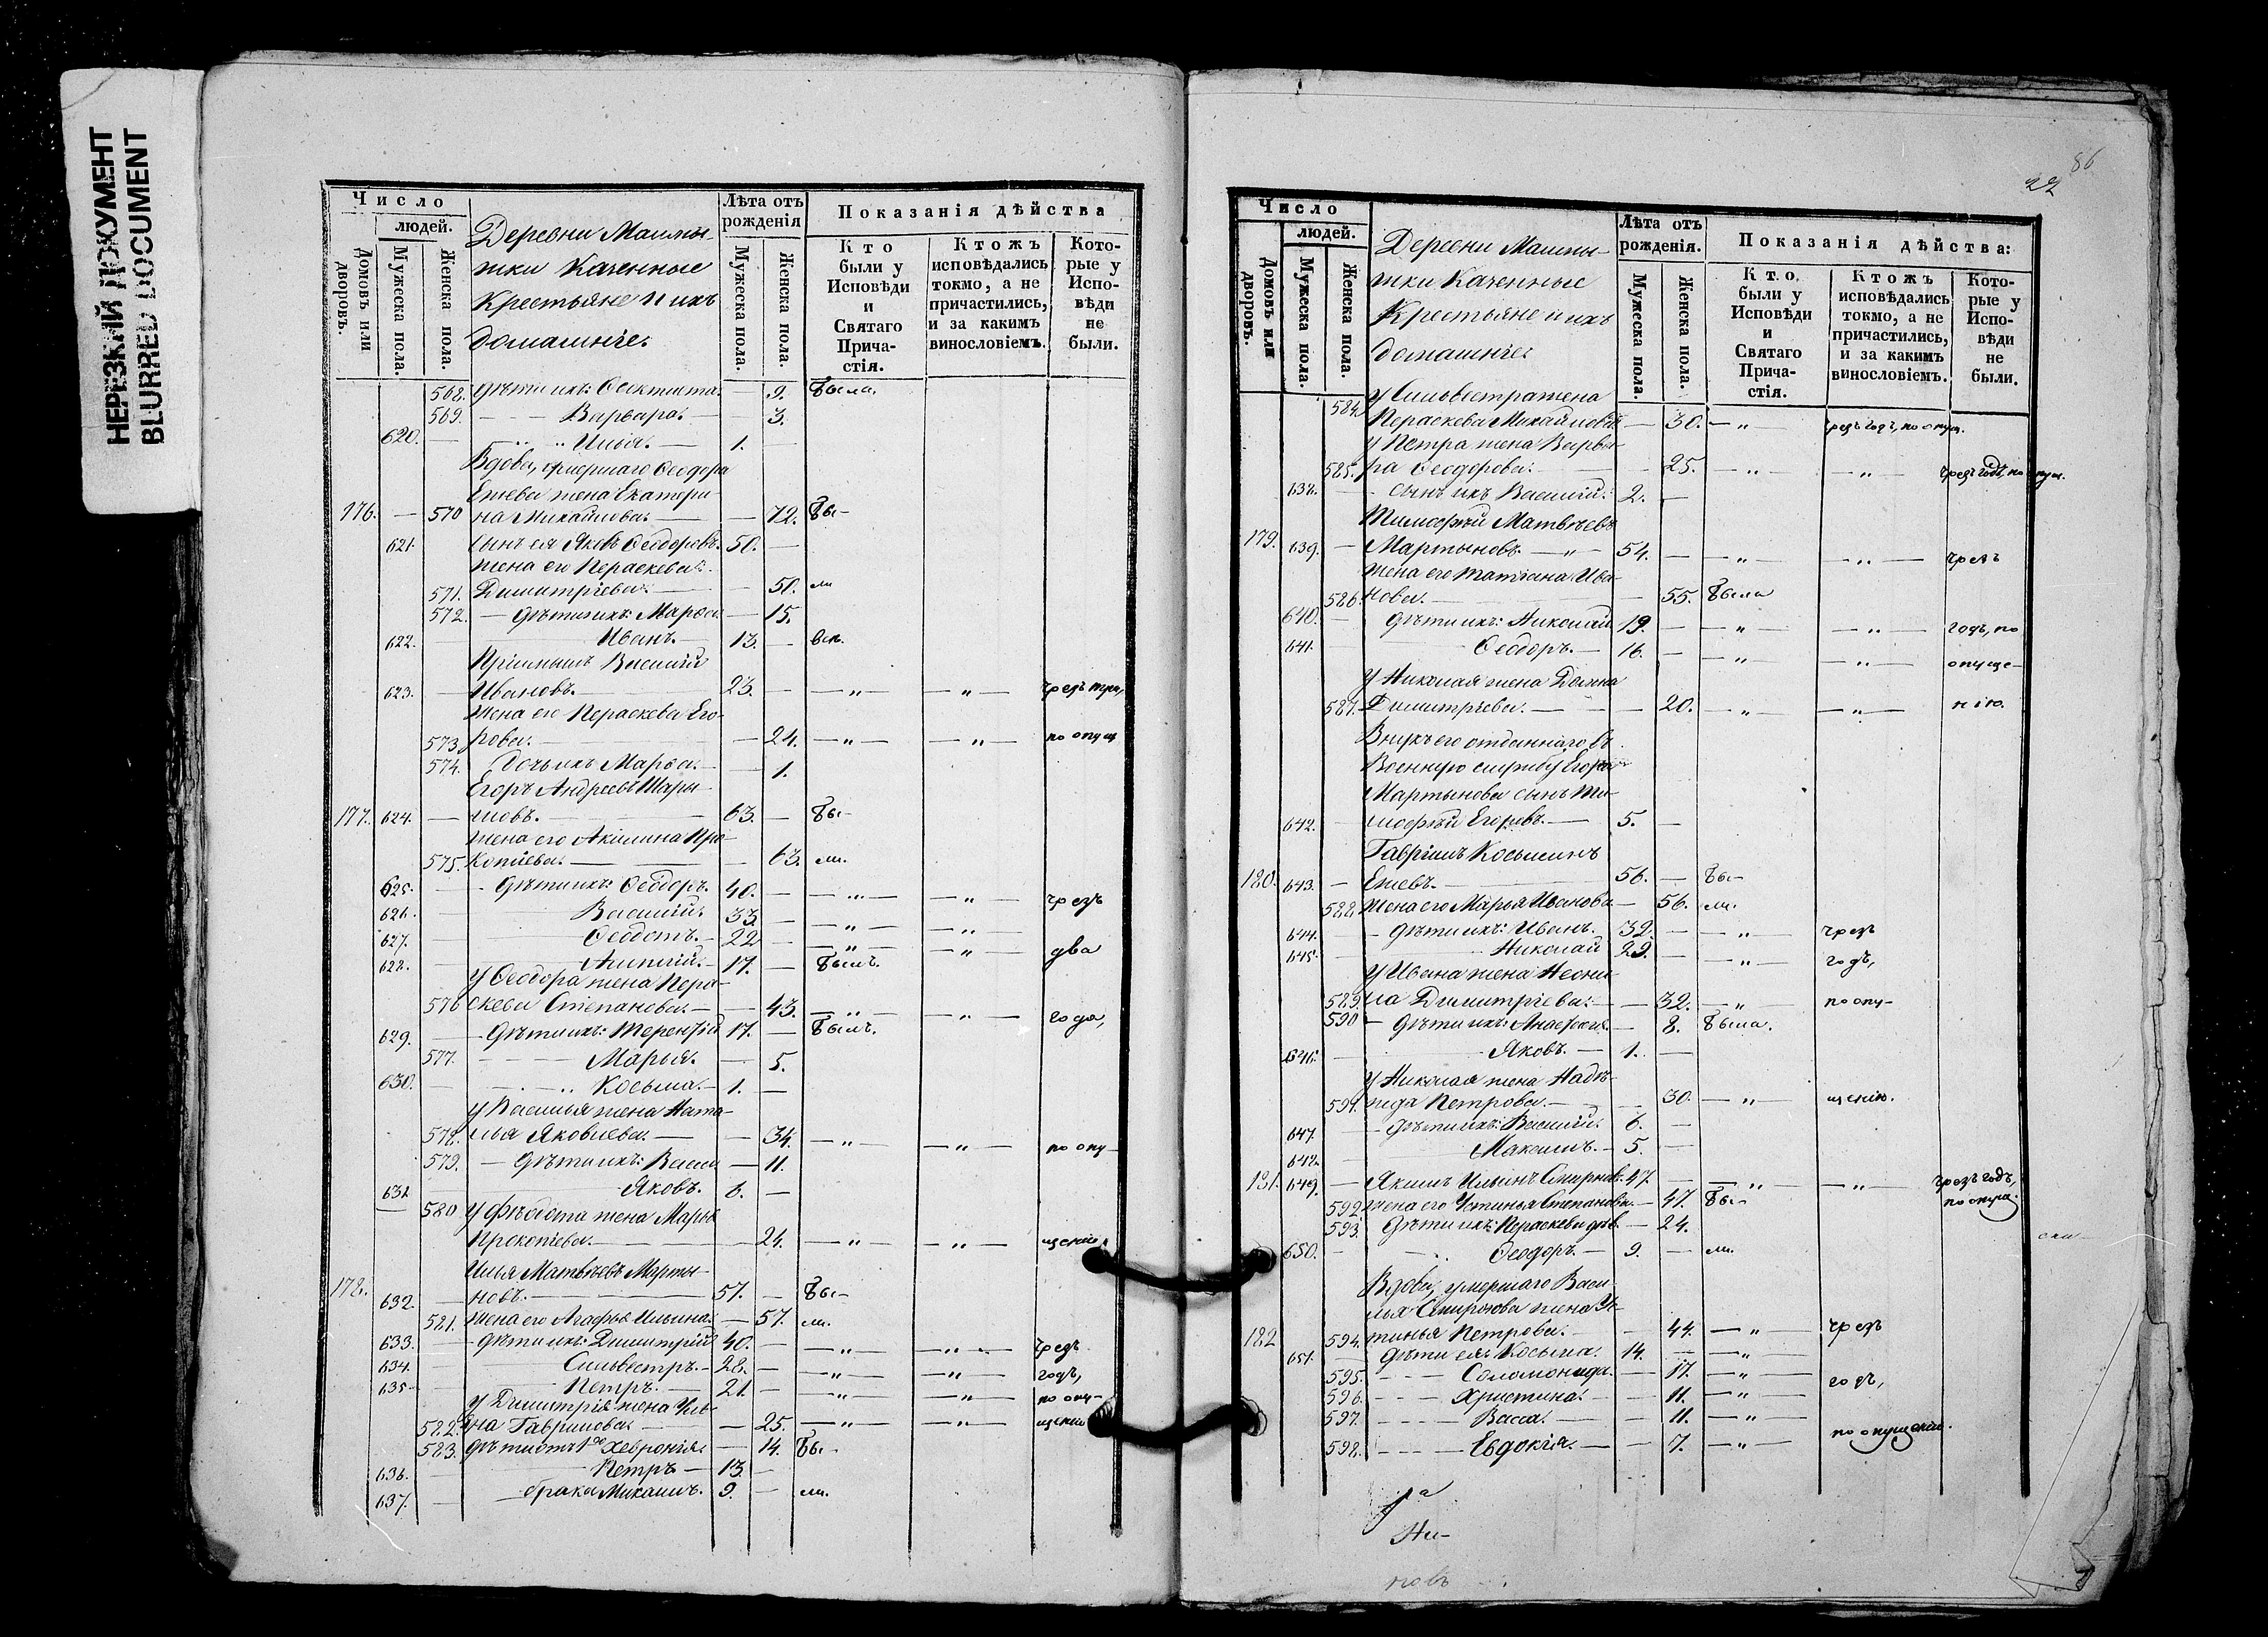 НЕРЕЗКИЙ ДОКУМЕНТ
BLURRED DOCUMENT
Число
людей.
Домовъ или дворовъ.
Мужеска пола.
Женска пола.
Деревни Машпы-
тки Казенные
Крестьяне и ихъ
домашніе.
Лѣта отъ рожденія
Мужеска пола.
Женска пола.
Показанія дѣйства
Кто были у Исповѣди и Святаго Причастія.
Ктожъ исповѣдались токмо, а не причастились, и за какимъ винословіемъ.
Которые у Исповѣди не были.
568. дѣти ихъ: Феоктиста. — 9. Была.
569. — Варвара. — 3.
620. — " " Илья. — 1. —
Вдова, умершаго Феодора
Ежева жена Екатери-
176. — 570 на Михайлова. — — 72. Бы-
621. сынъ ея Яковъ Феодоровъ. 50. —
жена его Параскева
571. Димитріева. — — 50. ли
572. — дѣти ихъ: Марѳа. — 15.
622. Иванъ. — 13. — вси.
Пріимышъ Василій
623. — Ивановъ. — 23. — — " — — " — чрезъ три,
Жена его Параскева Его-
573. рова. — — 24. — " — — " — по опущ
574. Дочь ихъ Марѳа. — — 1.
Егоръ Андреевъ Шары-
177. 624. — повъ. — 63. — Бы-
жена его Акилина Про-
575. копіева. — — 63. ли.
625. — дѣти ихъ: Феодоръ. 40. — — " — — " — чрезъ
626. — Василій. 33. — — " — — " —
627. — Феодотъ. — 22 — — " — — " — два
628. — 17. — Былъ.
У Феодора жена Пера-
576 скева Стефанова. — — 43. — " — — " — года,
629. — дѣти ихъ: Терентій 17. — Былъ.
577. — Марья. — 5.
630. — " Косьма. — 1. —
У Василья жена Ната-
578. лья Яковлева. — — 34. — " — — " — по опу-
579. — дѣти ихъ: Васса — 11.
631 Яковъ. 6. —
580 У Феодота жена Марья
Прокопіева. — 24. — " — — " — щенію
Илья Матвѣевъ Марты-
178. 632. — новъ. — 57. — Бы-
581. Жена его Агафья Ильина. — 57. ли.
633. — дѣти ихъ: Димитрій 40. — — " — — " — чрезъ
634. — Сильвестръ. — 28. — — " — — " — годъ,
635 — Петръ. — 21. — — " — — " — по опу-
У Димитрія жена Уль-
582. яна Гаврилова. — — 25. — " — — " — щенію
583. дѣти отъ 1го Хевронія. — 14. Бы-
636. Петръ — 13. —
637. — брака Михаилъ. 9. — ли.
86
22
Число
людей.
Домовъ или дворовъ.
Мужеска пола.
Женска пола.
Деревни Машпы-
тки Казенные
Крестьяне и ихъ
домашніе.
Лѣта отъ рожденія.
Мужеска пола.
Женска пола.
Показанія дѣйства:
Кто были у Исповѣди и Святаго Причастія.
Ктожъ исповѣдались токмо, а не причастились, и за какимъ винословіемъ.
Которые у Исповѣди не были.
У Сильвестра жена
584. Параскева Михайлова — 30. — " — чрезъ годъ, по опущ.
У Петра жена Варва-
585. ра Феодорова. — — 25. — " — — " — чрезъ годъ, по опущ.
638. — сынъ ихъ Василій. 2. —
Тимофей Матвѣевъ
179. 639. — Мартыновъ. — " — 54. — — " — — " — чрезъ
жена его Татіана Ива-
586. нова. — — 55. Была
640. — дѣти ихъ: Николай 19. — — " — — " — годъ, по
641. Феодоръ. — 16. — — " — — " — опуще-
У Николая жена Домна
587. Димитріева. — — 20. — " — — " — нію.
Внукъ его отданнаго въ
Военную службу Егора
Мартынова сынъ Ти-
642. — мофей Егоровъ. — 5. —
Гавріилъ Косьминъ
180. 643. — Ежевъ. — 56. — Бы-
588. Жена его Марья Иванова — 56. ли.
644. — дѣти ихъ: Иванъ. 32. — — " — чрезъ
645. — Николай 29. — — " — годъ,
У Ивана жена Неони-
589. ла Димитріева. — — 32. — " — по опу-
590 — дѣти ихъ: — 8. Была.
646. — Яковъ. — 1. —
У Николая жена Надѣ-
591. жда Петрова. — — 30. — " — щенію.
647. — дѣти ихъ: Василій. 6. —
648. Максимъ. — 5. —
181. 649. — Якимъ Ильинъ Смирновъ. 47. — — " — — " — чрезъ годъ,
592. жена его Устинья Степанова. — 47. Бы- по опущ.
593. дѣти ихъ: Параскева дѣв. — 24.
650. — Феодоръ. — 9. — ли.
Вдова, умершаго Васи-
лья Смирнова жена Ус-
182 594. тинья Петрова. — — 44. — " — чрезъ
651. дѣти ея: Косьма. 14. — — " —
595. — Соломонида. — 17. — " — годъ,
596. — Христина. — — 11. — " —
597. — Васса. — — 11. — " —
598. — Евдокія. — — 7. — " — по опущенію.
Ни-